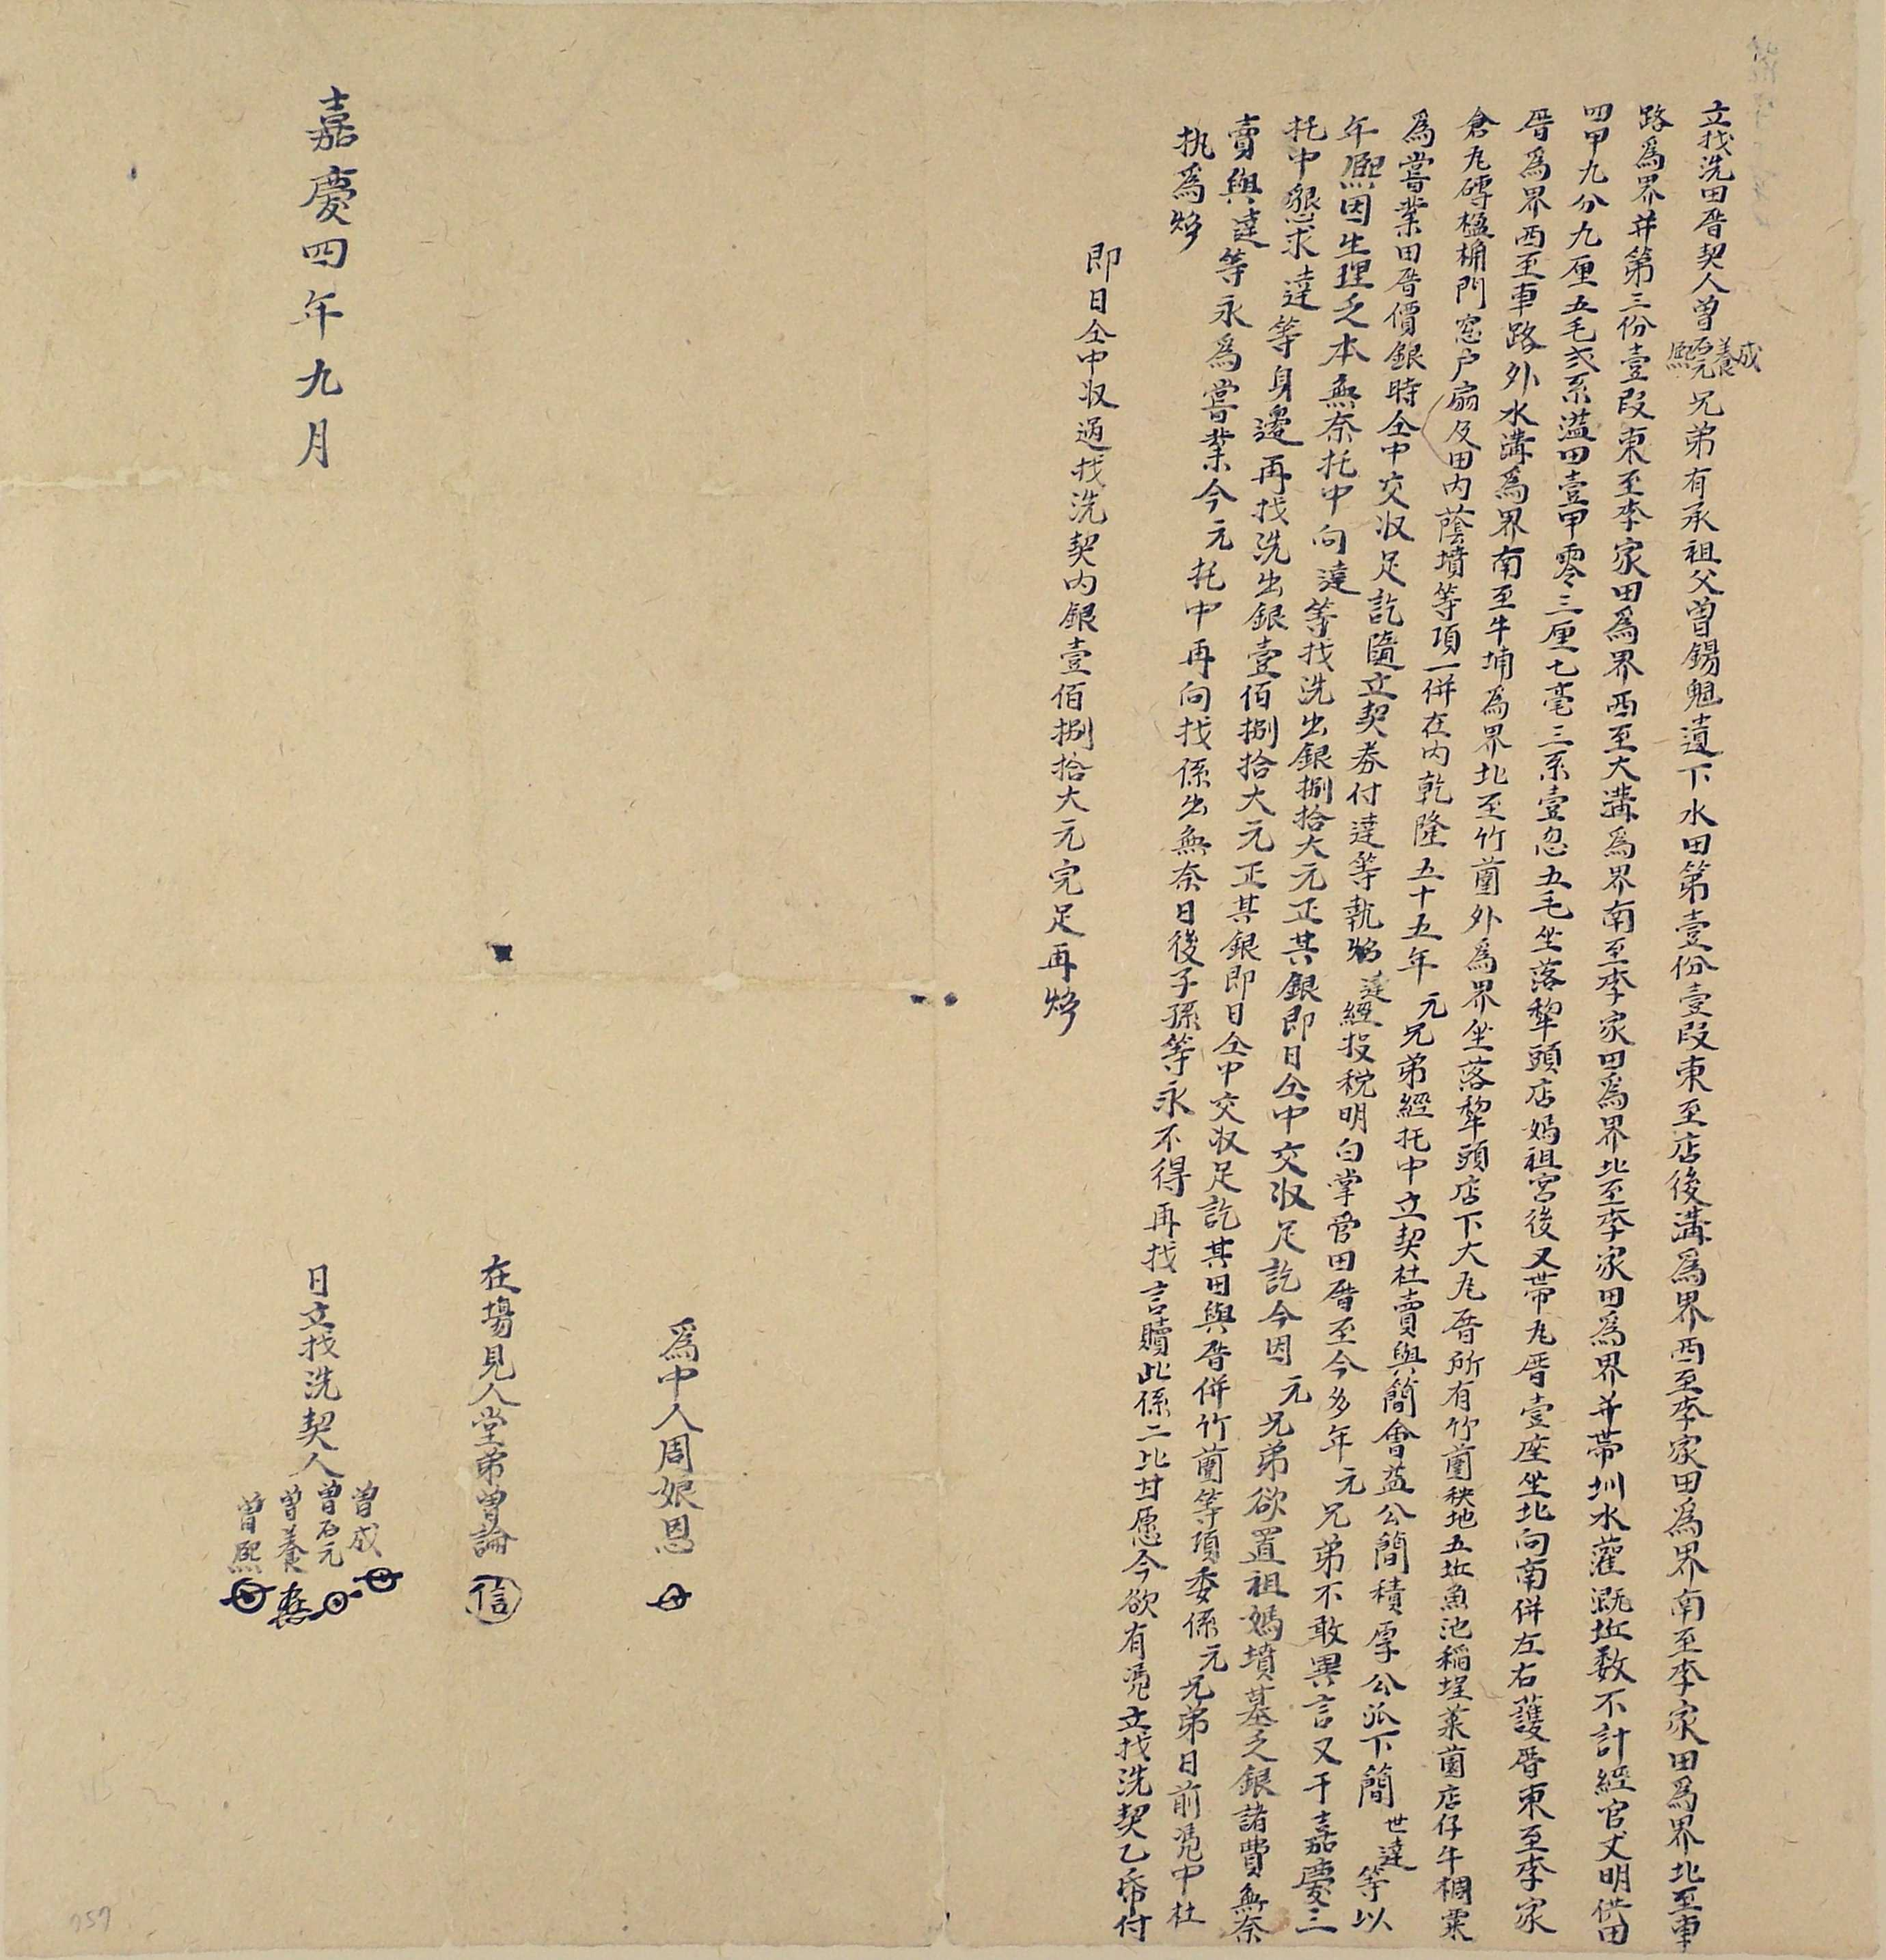 立找洗田厝契人曾成養石元熙兄弟有承祖父曾錫魁遺下水田第壹份壹段東至店後溝為界西至李家田為界南至李家田為界北至車
路為界并第三份壹段東至李家田為界西至大溝為界南至李家田為界北至李家田為界并帶圳水灌溉坵数不計經官丈明供田
四甲九分九厘五毛弍系溢田壹甲零三厘七毫三系壹忽五毛坐落犂頭店媽祖宮後又帶瓦厝壹座坐北向南併左右護厝東至李家
厝為界西至車路外水溝為界南至牛埔為界北至竹蘭外為界坐落犂頭店下大瓦厝所有竹蘭秧地五坵魚池稲埕菜園店仔牛椆粟
倉瓦磚楹桷門窓户扇及田内蔭墳等項一併在内乾隆五十五年元兄弟經托中立契杜賣與簡會益公簡積厚公派下簡世達等以
為嘗業田厝價銀時仝中交収足訖隨立契券付達等執炤達經投稅明白掌管田厝至今多年元兄弟不敢異言又于嘉慶三
年熙因生理乏本無奈托中向達等找洗出銀捌拾大元正其銀即日仝中交収足訖今因元兄弟欲置祖媽墳墓乏銀諸費無奈
托中懇求達等身邊再找洗出銀壹佰捌拾大元正其銀即日仝中交収足訖其田與厝併竹蘭等項委係元兄弟日前憑中杜
賣與達等永為嘗業今元托中再向找係出無奈日後子孫等永不得再找言贖此係二比甘愿今欲有憑立找洗契乙帋付
执為炤
即日仝中収過找洗契内銀壹佰捌拾大元完足再炤
為中人周娘恩
在場見人堂弟曾論 信
嘉慶四年九月 日立找洗契人曾成 曾石元 曾養 曾熙
757